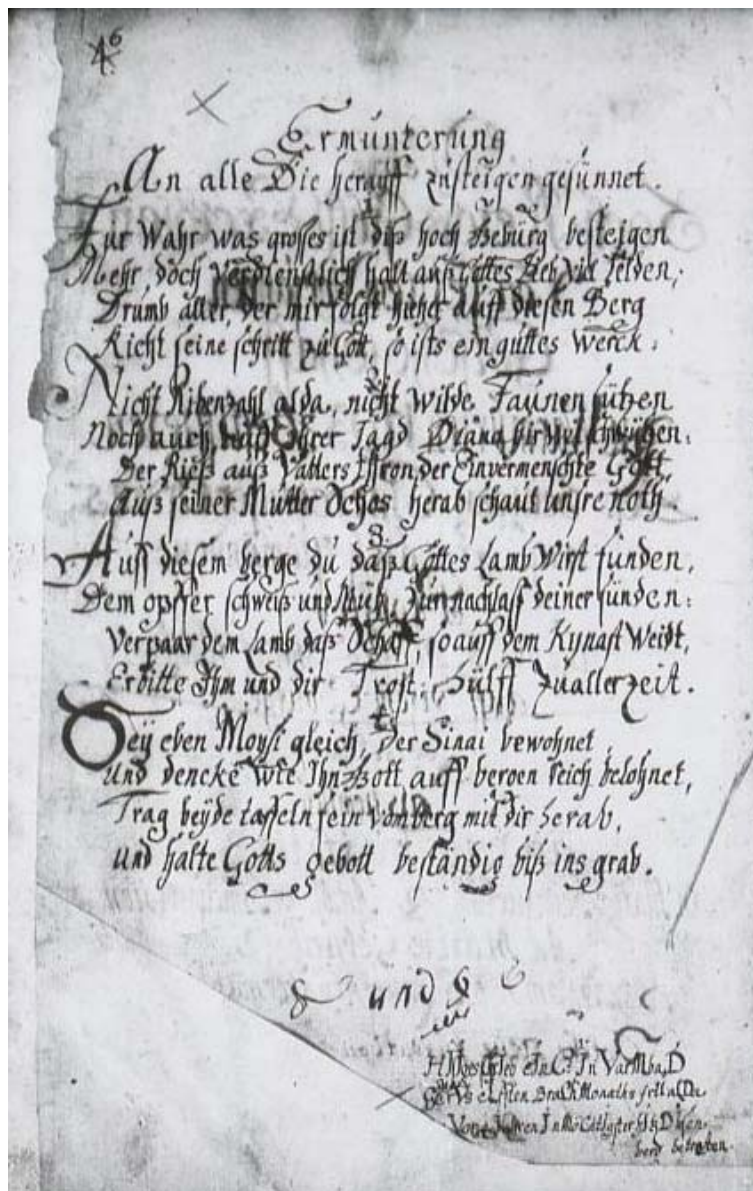 46
Ermunterung
An alle Die herauff zusteigen gesünnet.
1
Fur Wahr was grosses ist diß hoch Gebürg besteigen
Mehr doch verdienstlich halt auß Gottes Lieb viel leiden,
Drumb aller, der mir folgt hieher auff diesen Berg
Richt seine schritt zu Gott, so ists ein guttes werck.
Nicht Ribenzahl alda, nicht wilde Faunen sützen
Noch auch nach ihrer Jagd Diana hir
Der Rieß auß Vatters Thron, der Einvermenschte Gott,
Auß seiner Mutter Schos herab schaut unsre noth.
3
Auff diesem berge du daß Gottes Lamb Wirst funden,
Dem opffer schweiß und Müh, zur nachlass deiner sunden:
Verpaar dem Lamb daß Schaff, so auff dem Kynast Weidt,
Erbitte Ihm und dir Trost, Hülff zu aller zeit.
4
Sey eben Moysi gleich, der Sinai bewohnet,
Und dencke wie Ihn Gott auff beroen reich belohnet,
Trag beyde taffeln fein vom berg mit dir herab,
Und halte Gotts gebott beständig biß ins grab.
und
betreten.